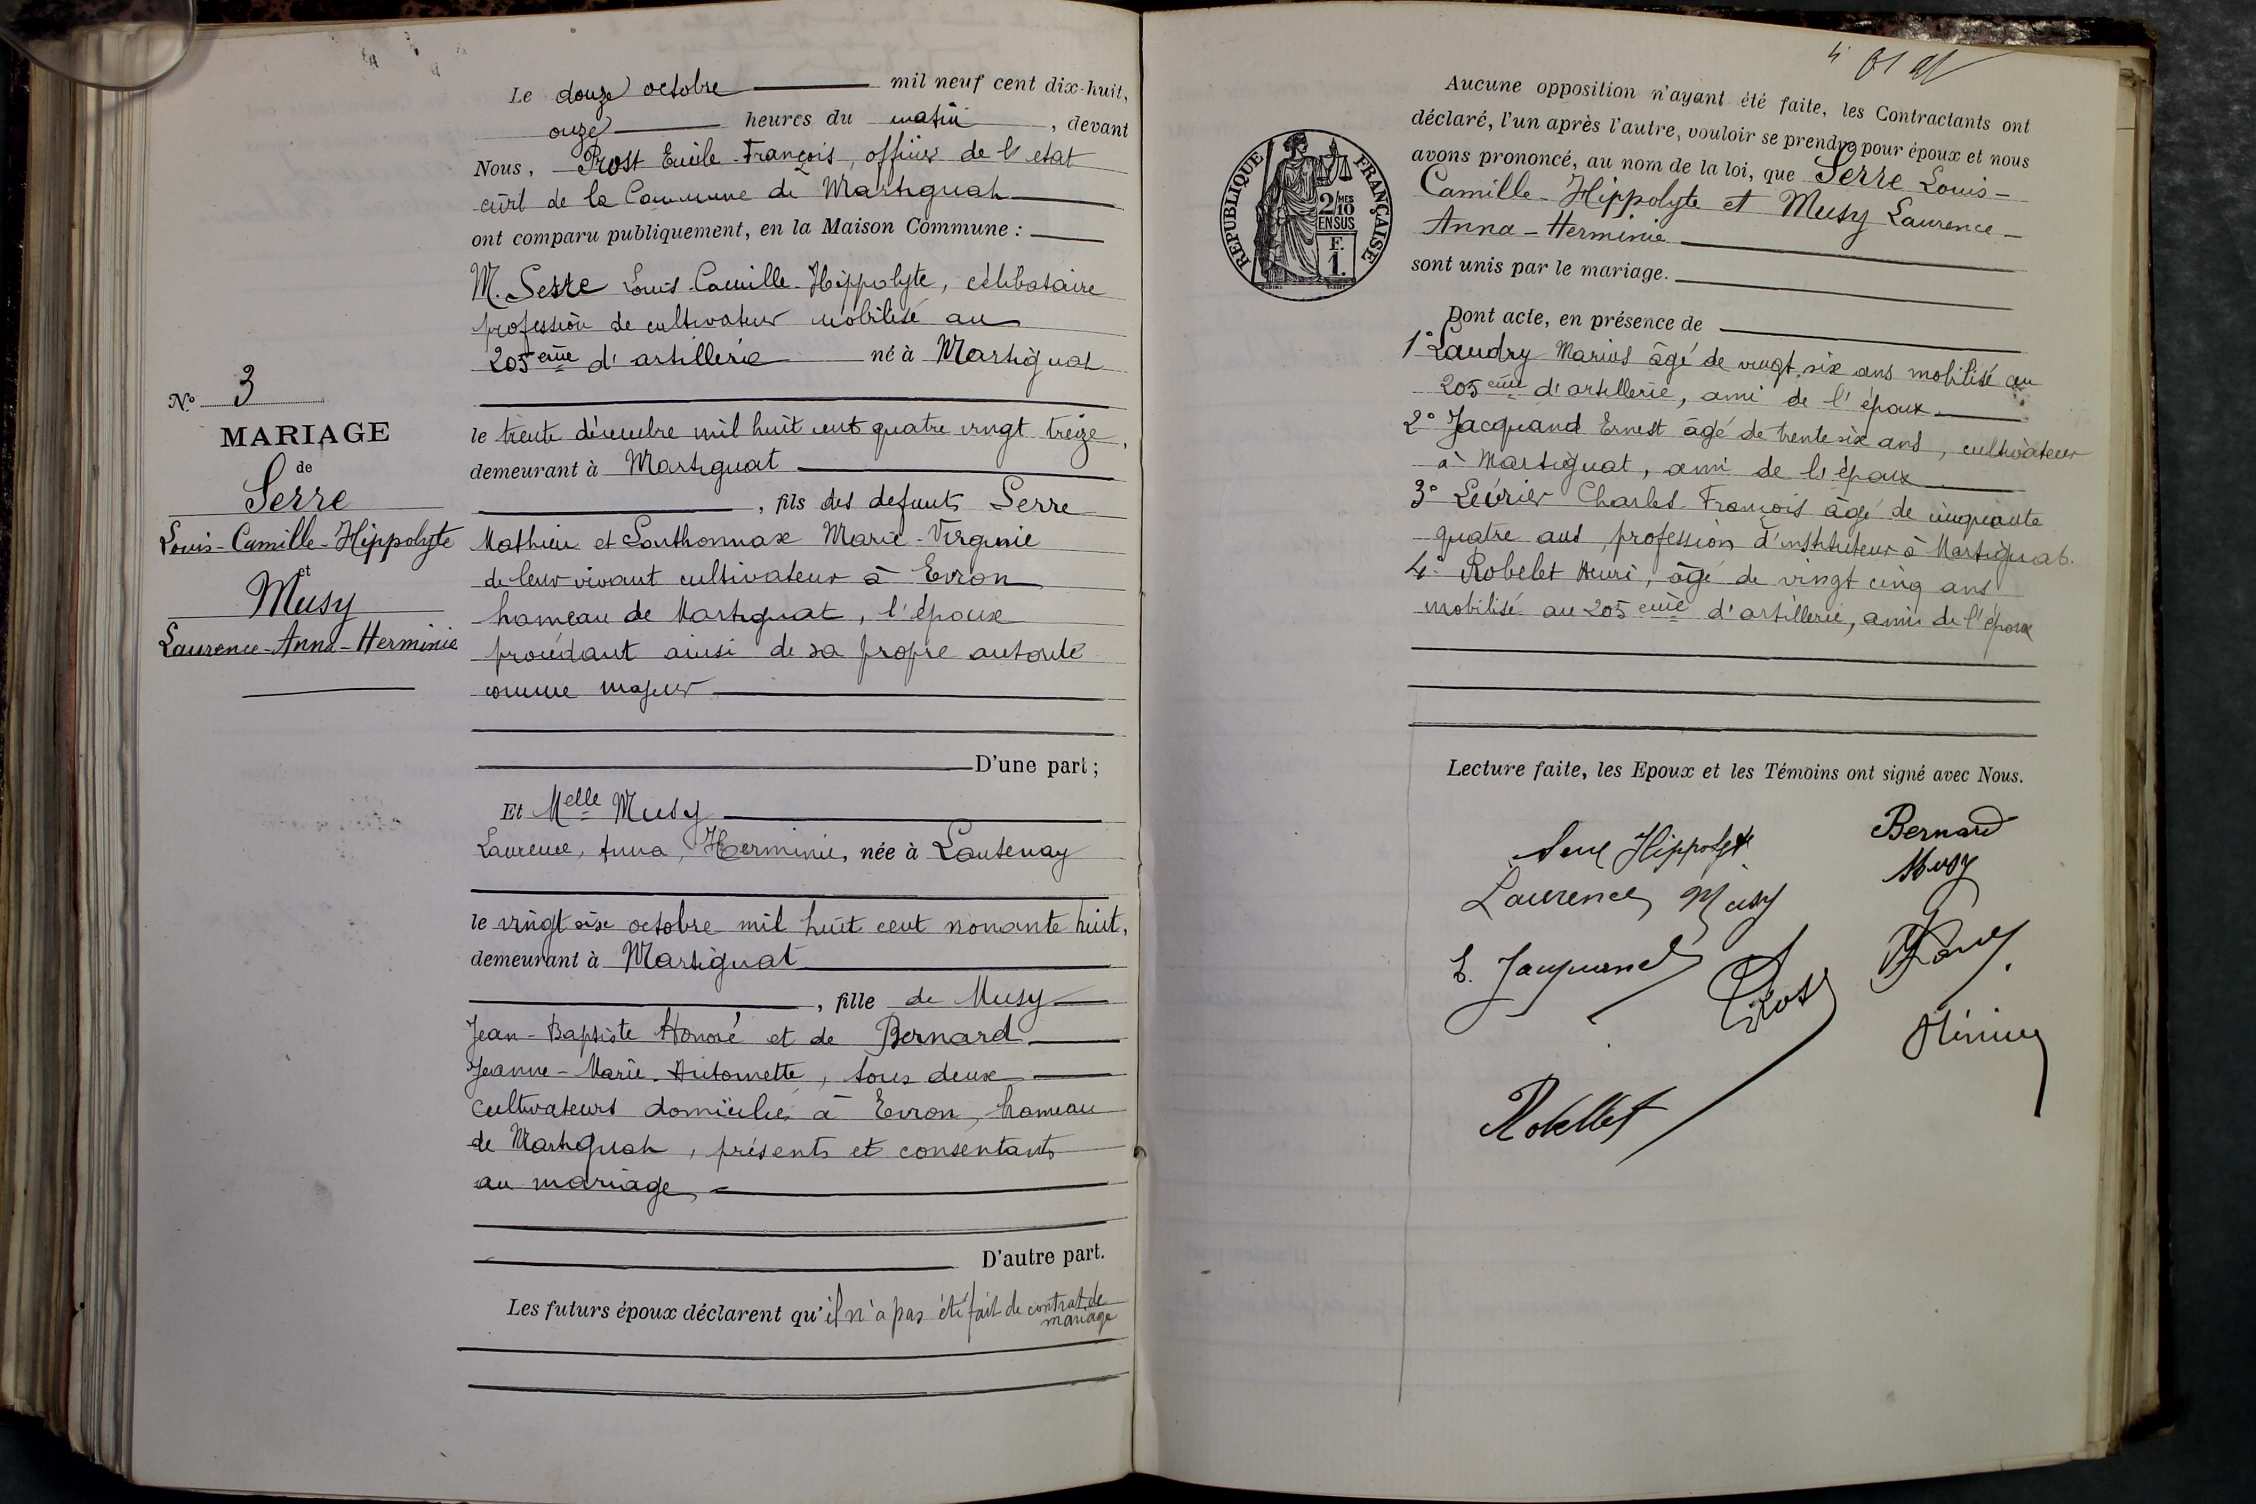 Le douze octobre mil neuf cent dix-huit,
onze heures du matin, devant
Nous, Prost Emile-François, officier de l'etat
civil de la Commune de Martignat
ont comparu publiquement, en la Maison Commune :
M. Serre Louis-Camille-Hippolyte, célibataire
profession de cultivateur mobilisé au
205 eme d'artillerie né à Martignat
le trente décembre mil huit cent quatre vingt treize,
demeurant à Martignat
, fils des defunts Serre
Mathieu et Sonthonnax Marie-Virginie
de leur vivant cultivateur à Evron
hameau de Martignat, l'époux
procédant ainsi de sa propre autorité
comme majeur
D'une part ;
Et Melle Musy
Laurence, Anna, Herminie, née à Lantenay
le vingt six octobre mil huit cent nonante huit,
demeurant à Martignat
, fille de Musy
Jean-Baptiste Honoré et de Bernard
Jeanne-Marie-Antoinette, tous deux
cultivateurs domicilié à Evron, hameau
de Martignat, présents et consentants
au mariage,
D'autre part.
Les futurs époux déclarent qu'il n'a pas été fait de contrat de
mariage
N° 3
MARIAGE
de
Serre
Louis-Camille-Hippolyte
et
Musy
Laurence-Anna-Herminie
Aucune opposition n'ayant été faite, les Contractants ont
déclaré, l'un après l'autre, vouloir se prendre pour époux et nous
avons prononcé, au nom de la loi, que Serre Louis-
Camille-Hippolyte et Musy Laurence-
Anna-Herminie
sont unis par le mariage.
Dont acte, en présence de
1° Laudry Marius âgé de vingt six ans mobilisé au
205 eme d'artillerie, ami de l'époux
2° Jacquand Ernest âgé de trente six ans, cultivateur
à Martignat, ami de l'époux
3° Levrier Charles-François âgé de cinquante
quatre ans, profession d'instituteur à Martignat.
4° Robelet Henri, âgé de vingt cinq ans
mobilisé au 205 eme d'artillerie, ami de l'époux
Lecture faite, les Epoux et les Témoins ont signé avec Nous.
Serre Hippolyte
Bernard
Laurence Musy
Musy
E. Jacquand
Prost
Robellet
RÉPUBLIQUE FRANÇAISE
2/10
EN SUS
F.
1.